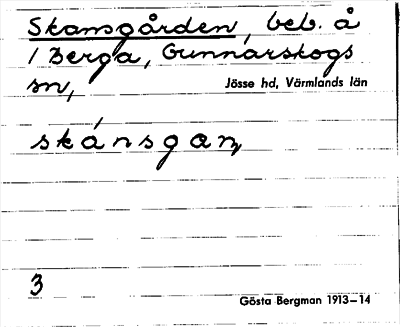 Skansgården, beb. å
1 Berga, Gunnarskogs
sn,
Jösse hd, Värmlands län
skánsgaṇ
3
Gösta Bergman 1913–14